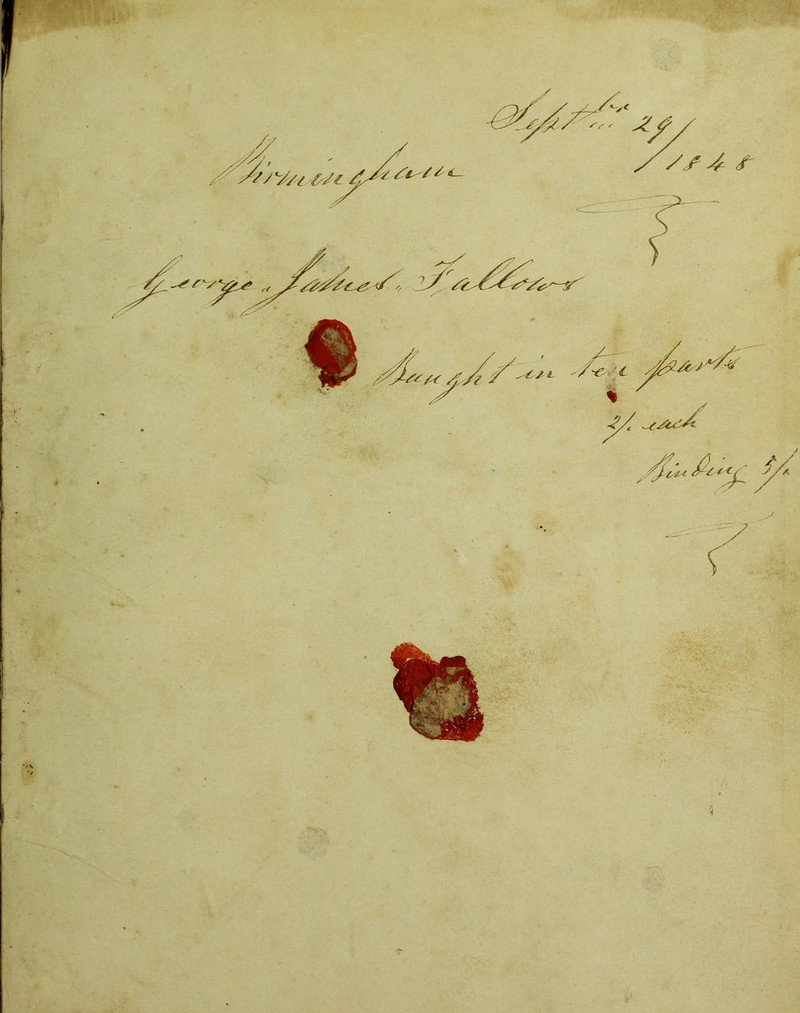 Septbr 29/1848
Birmingham
George. James. Fallows
Baught in ten parts
2/. each
Binding 5/.